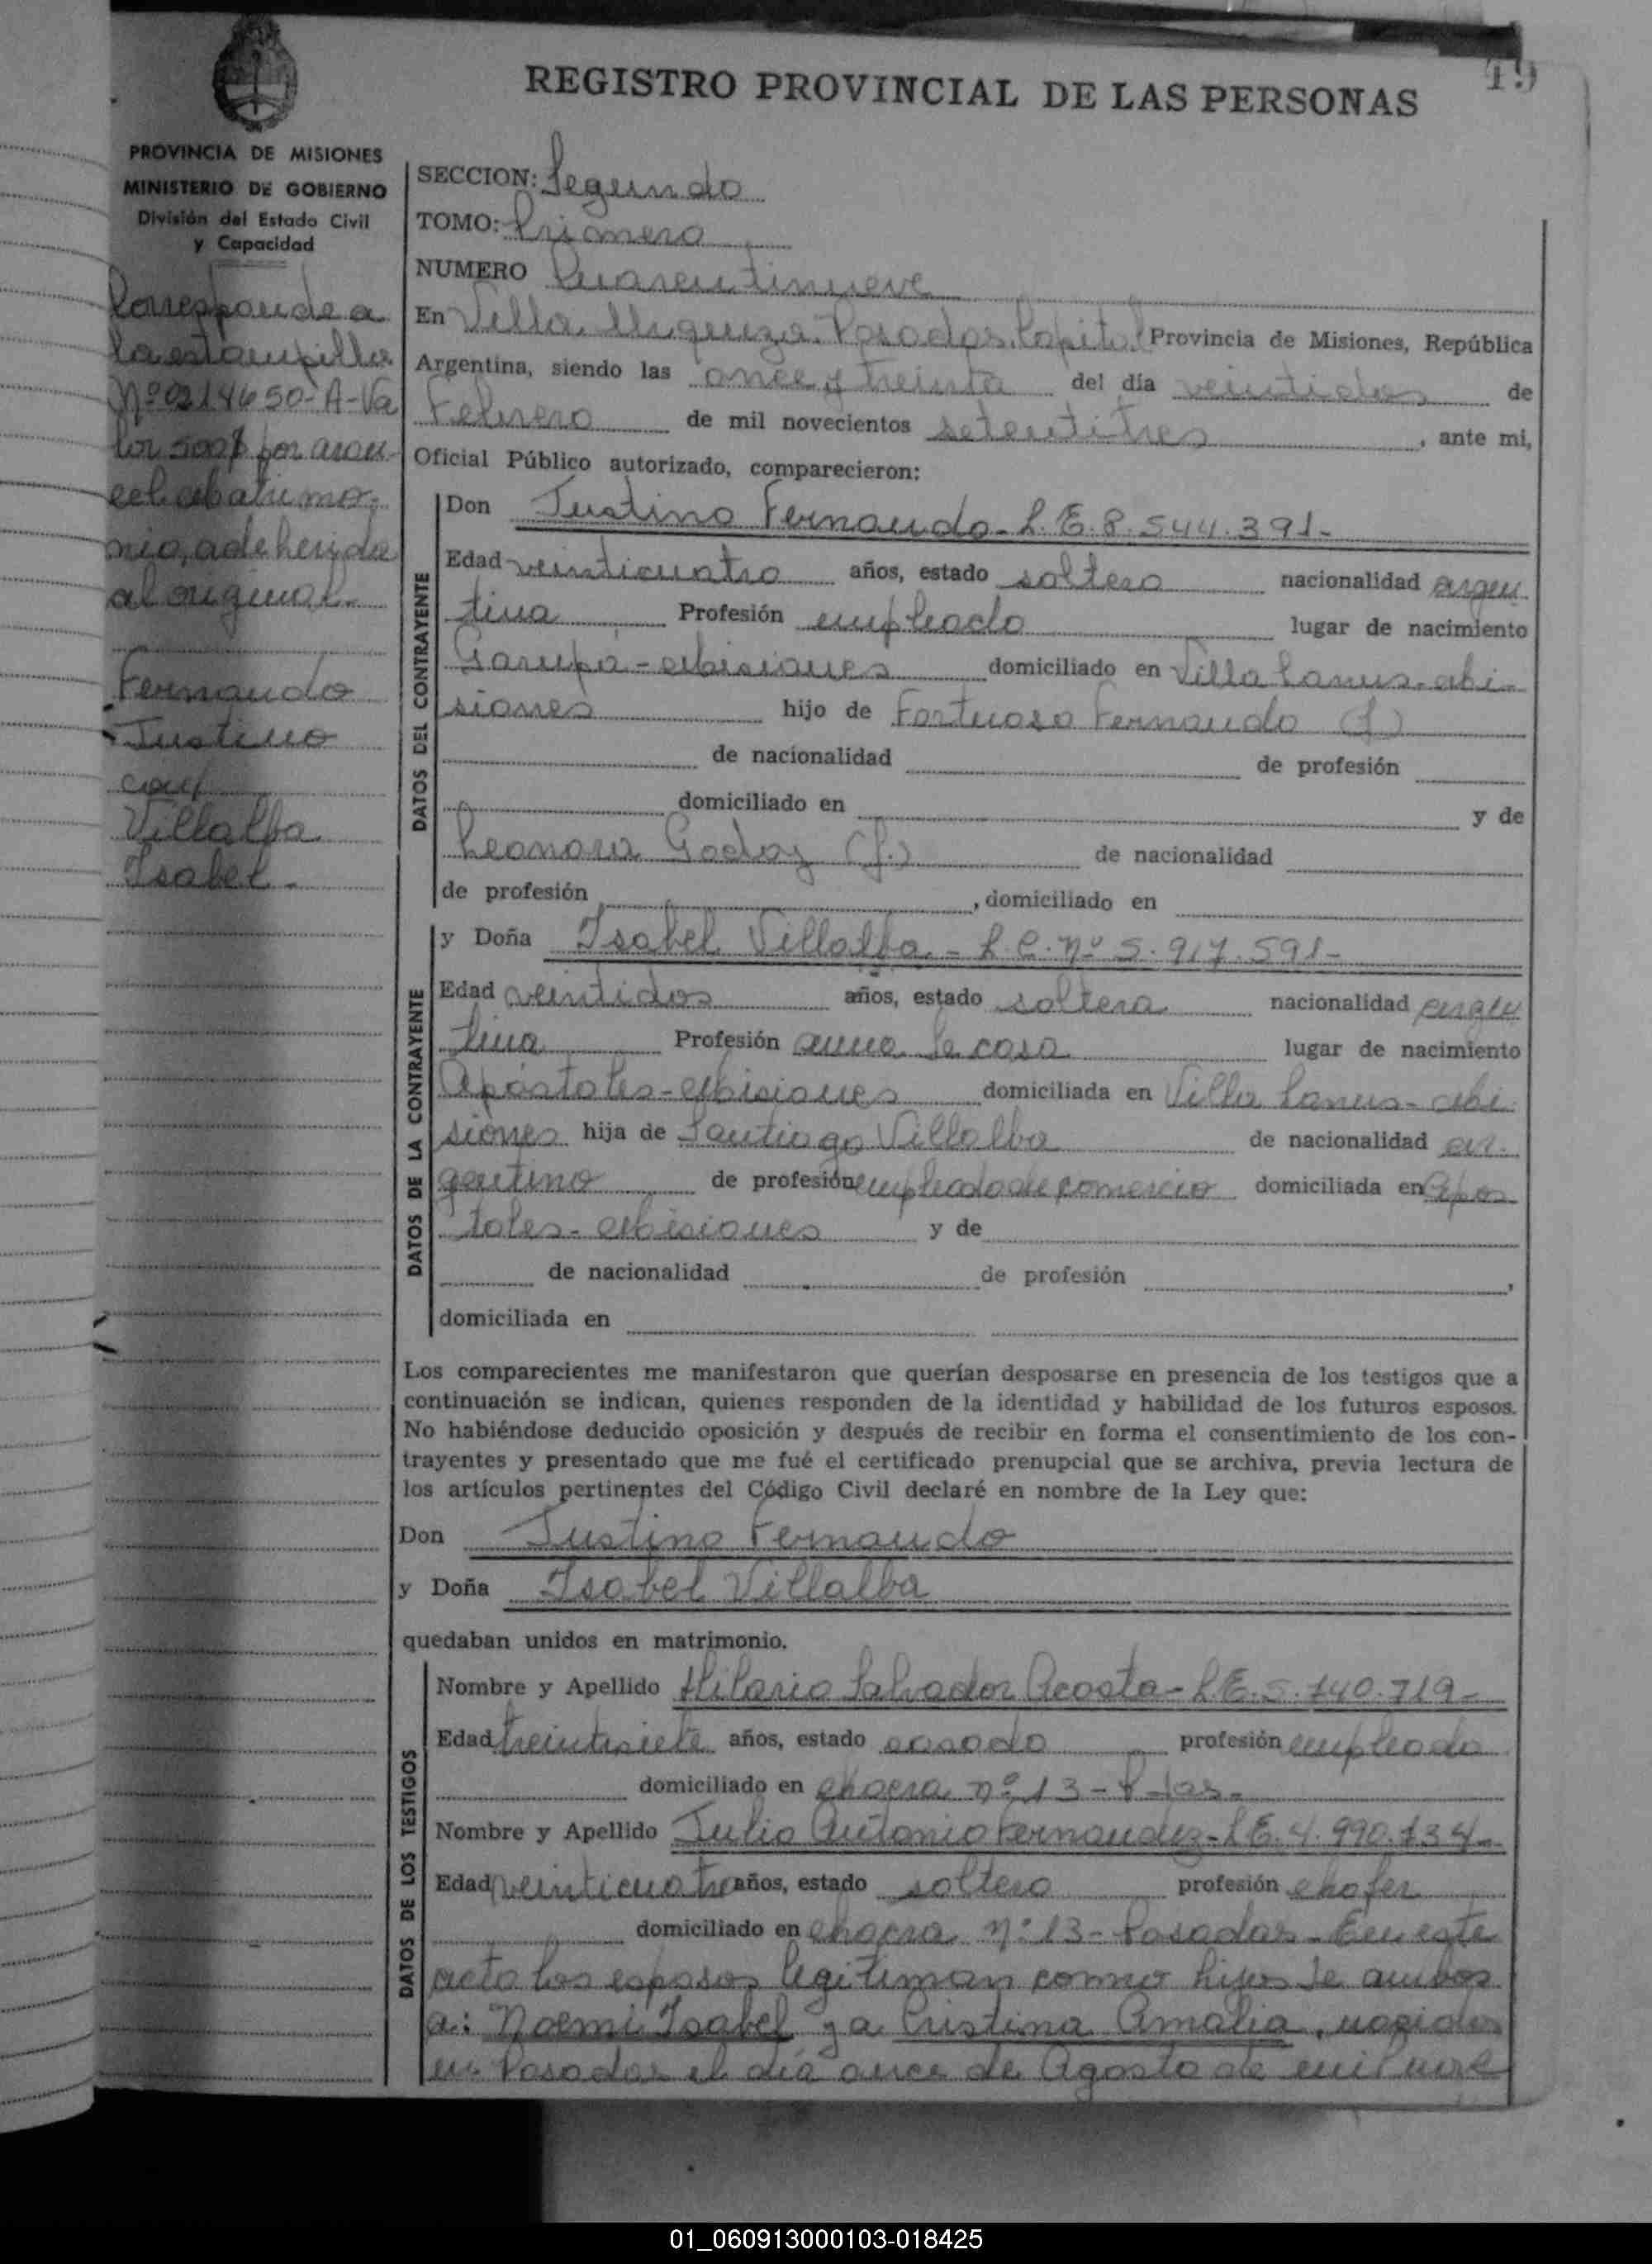 49
REGISTRO PROVINCIAL DE LAS PERSONAS
PROVINCIA DE MISIONES
MINISTERIO DE GOBIERNO
División del Estado Civil
y Capacidad
Corresponde a
la estampilla
Nº 0214650-A-Va
lor 500$ por aran
cel matrimo-
nio, adherida
al original.
Fernando
Justino
con
Villalba
Isabel.
SECCION: Segundo
TOMO: Primero
NUMERO Cuarentinueve
En Villa Urquiza. Posadas, Capital Provincia de Misiones, República
Argentina, siendo las once y treinta del día veintidos de
Febrero de mil novecientos setentitres, ante mi,
Oficial Público autorizado, comparecieron:
DATOS DEL CONTRAYENTE
Don Justino Fernando - L.E. 8.544.391-
Edad veinticuatro años, estado soltero nacionalidad argen
tina Profesión empleado lugar de nacimiento
Garupá - Misiones domiciliado en Villa Lanus - Mi-
siones hijo de Fortuoso Fernando (f)
de nacionalidad de profesión
domiciliado en y de
Leonora Godoy (f.) de nacionalidad
de profesión , domiciliado en
DATOS DE LA CONTRAYENTE
y Doña Isabel Villalba - L.C. Nº 5.917.591-
Edad veintidos años, estado soltera nacionalidad argen
tina Profesión ama de casa lugar de nacimiento
Apóstoles - Misiones domiciliada en Villa Lanus - Mi
siones hija de Santiago Villalba de nacionalidad ar-
gentino de profesión empleado de comercio domiciliada en Após
toles - Misiones y de
de nacionalidad de profesión ,
domiciliada en
Los comparecientes me manifestaron que querían desposarse en presencia de los testigos que a
continuación se indican, quienes responden de la identidad y habilidad de los futuros esposos.
No habiéndose deducido oposición y después de recibir en forma el consentimiento de los con-
trayentes y presentado que me fué el certificado prenupcial que se archiva, previa lectura de
los artículos pertinentes del Código Civil declaré en nombre de la Ley que:
Don Justino Fernando
y Doña Isabel Villalba
quedaban unidos en matrimonio.
DATOS DE LOS TESTIGOS
Nombre y Apellido Hilario Salvador Acosta - L.E. 5.740.719-
Edad treintisiete años, estado casado profesión empleado
domiciliado en chacra nº 13 - P-das-
Nombre y Apellido Julio Antonio Fernandez - L.E. 4.990.734-
Edad veinticuatro años, estado soltero profesión chofer
domiciliado en chacra nº 13 - Posadas - En este
acto los esposos legitiman como hijas de ambos
a: Noemi Isabel y a Cristina Amalia, nacidas
en Posadas el día once de Agosto de mil nove
01_060913000103-018425